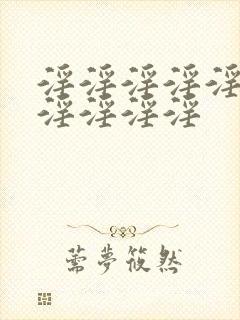 淫淫淫淫淫
淫淫淫淫
薷夢筱然